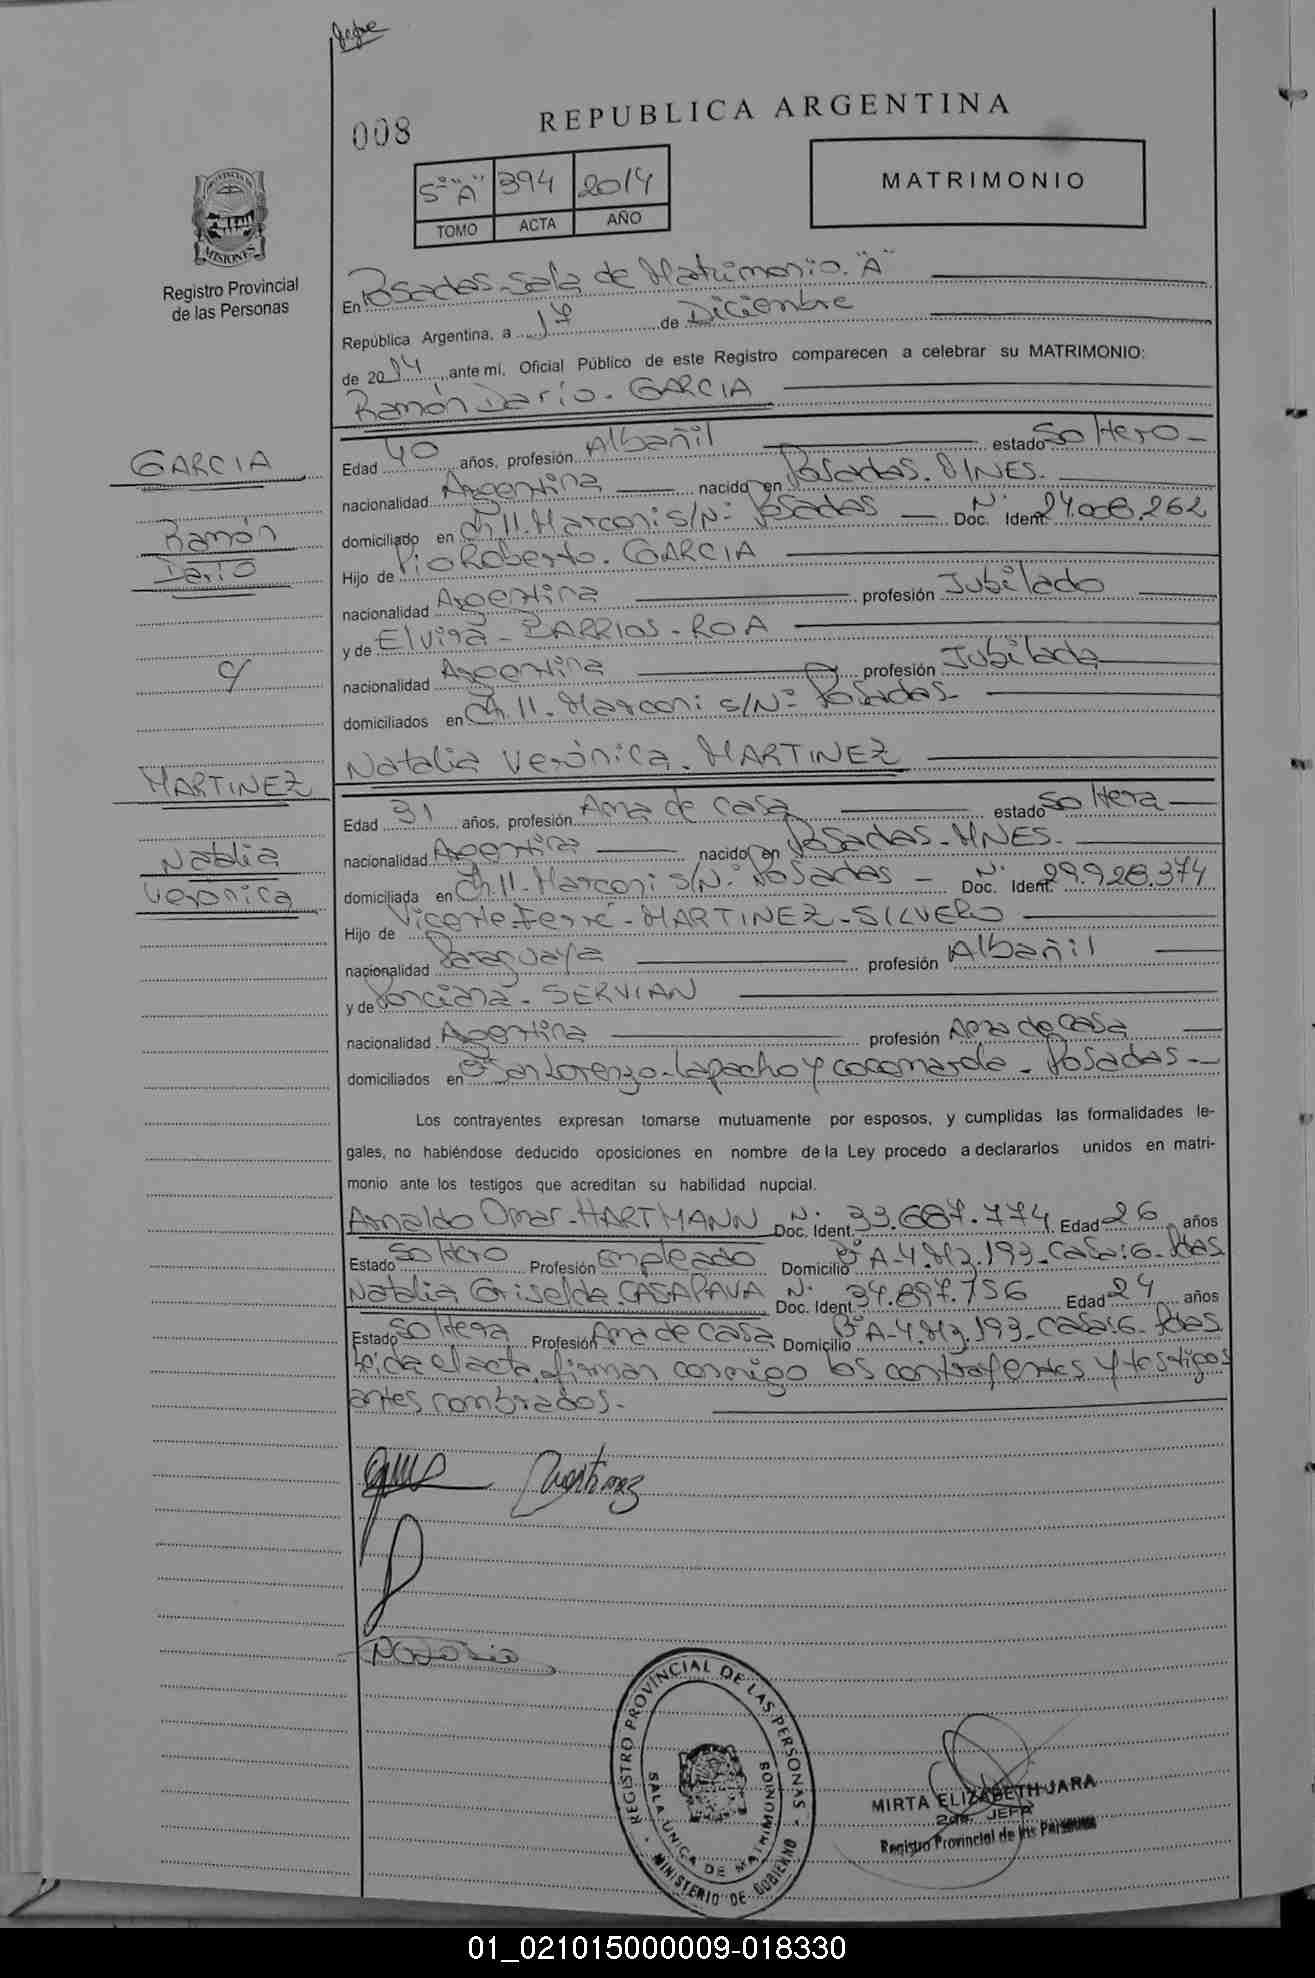 008
REPUBLICA ARGENTINA
5º "A" 394 2014
TOMO ACTA AÑO
MATRIMONIO
PROVINCIA DE MISIONES
Registro Provincial
de las Personas
En Posadas-Sala de Matrimonio "A"
República Argentina, a 1º de Diciembre
de 2014, ante mi, Oficial Público de este Registro comparecen a celebrar su MATRIMONIO:
Ramón Darío. GARCIA
GARCIA
Ramón
Darío
c/
MARTINEZ
Natalia
Verónica
Edad 40 años, profesión Albañil estado Soltero
nacionalidad Argentina nacido en Posadas. MNES.
domiciliado en Ch.11. Marconi S/Nº Posadas Doc. Ident. Nº 24.008.262
Hijo de Pio Roberto. GARCIA
nacionalidad Argentina profesión Jubilado
y de Elvira - BARRIOS - ROA
nacionalidad Argentina profesión Jubilada
domiciliados en Ch.11. Marconi S/Nº Posadas
Natalia Verónica. MARTINEZ
Edad 31 años, profesión Ama de casa estado Soltera
nacionalidad Argentina nacido en Posadas-MNES.
domiciliada en Ch.11. Marconi S/Nº Posadas Doc. Ident. Nº 29.928.374
Hijo de Vicente Ferré - MARTINEZ - SILVERO
nacionalidad Paraguaya profesión Albañil
y de Porciana - SERVIAN
nacionalidad Argentina profesión Ama de Casa
domiciliados en Bº San Lorenzo - Lapacho y - Posadas
Los contrayentes expresan tomarse mutuamente por esposos, y cumplidas las formalidades le-
gales, no habiéndose deducido oposiciones en nombre de la Ley procedo a declararlos unidos en matri-
monio ante los testigos que acreditan su habilidad nupcial.
Arnaldo Omar - HARTMANN Doc. Ident. Nº 33.687.774 Edad 26 años
Estado Soltero Profesión empleado Domicilio Bº A-4. Mz. 193. Casa: 6 - Pdas
Natalia Griselda. Doc. Ident Nº 34.897.756 Edad 24 años
Estado Soltera Profesión Ama de casa Domicilio Bº A-4. Mz. 193. Casa: 6 - Pdas
Leída el acta, firman conmigo los contrayentes y testigos
antes nombrados.
Martinez
REGISTRO PROVINCIAL DE LAS PERSONAS
SALA UNICA DE MATRIMONIOS
MINISTERIO DE GOBIERNO
MIRTA ELIZABETH JARA
2da. JEFA
Registro Provincial de las Personas
01_021015000009-018330